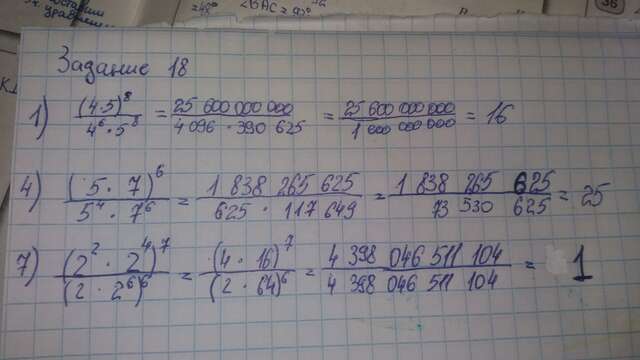 ∠BAC = 
Задание 18
1) (4·5)^8 / 4^6·5^8 = 25 600 000 000 / 4 096 · 390 625 = 25 600 000 000 / 1 600 000 000 = 16
4) (5·7)^6 / 5^4·7^6 = 1 838 265 625 / 625 · 117 649 = 1 838 265 625 / 73 530 625 = 25
7) (2^2·2^4)^7 / (2·2^6)^6 = (4·16)^7 / (2·64)^6 = 4 398 046 511 104 / 4 398 046 511 104 = 1